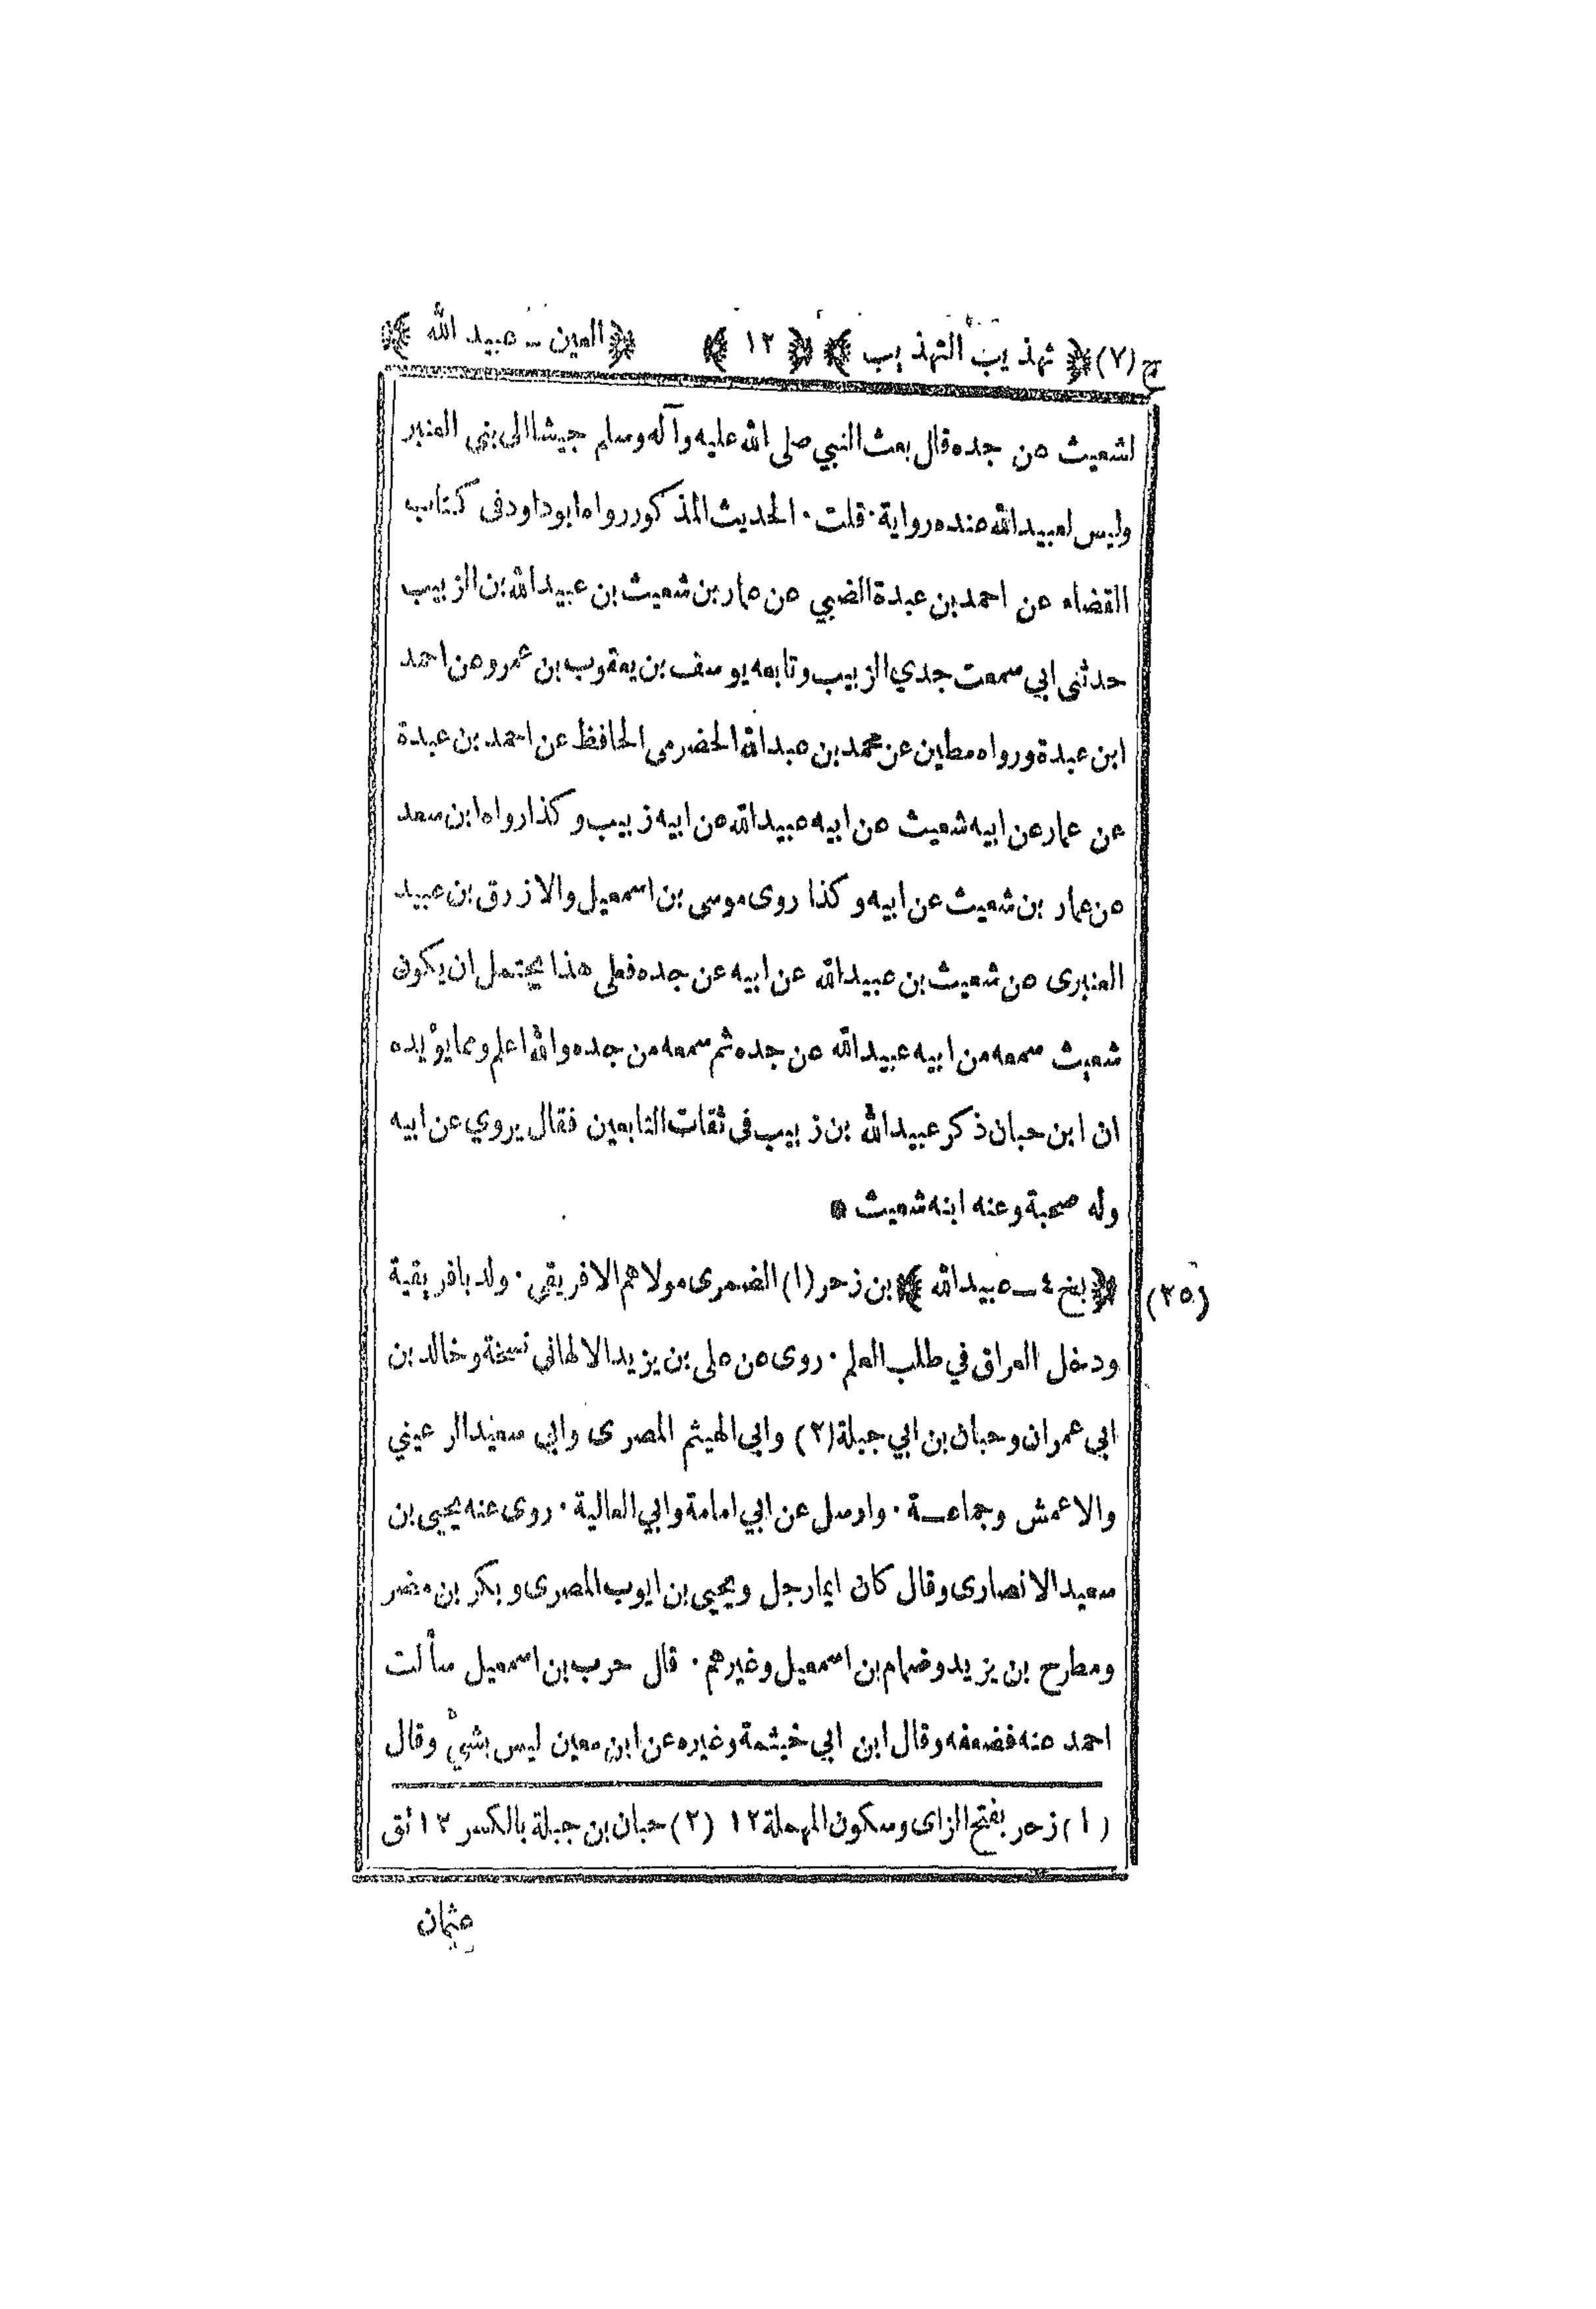 ج (٧) ﴿ تهذيب التهذيب ﴾ ﴿ ١٢ ﴾ ﴿ العين - عبيد الله ﴾
لشعيث عن جده قال بعث النبي صلى الله عليه وآله وسلم جيشا الى بني العنبر
وليس لعبيد الله عنده رواية · قلت · الحديث المذكور رواه ابو داود فى كتاب
القضاء عن احمد بن عبدة الضبي عن عمار بن شعيث بن عبيد الله بن الزبيب
حدثنى ابي سمعت جدي الزبيب وتابعه يوسف بن يعقوب بن عمرو عن احمد
ابن عبدة ورواه مطين عن محمد بن عبد الله الحضرمى الحافظ عن احمد بن عبدة
عن عمار عن ابيه شعيث عن ابيه عبيد الله عن ابيه زبيب وكذا رواه ابن سعد
عن عمار بن شعيث عن ابيه وكذا روى موسى بن اسمعيل والازرق بن عبيد
العنبرى عن شعيث بن عبيد الله عن ابيه عن جده فعلى هذا يحتمل ان يكون
شعيث سمعه من ابيه عبيد الله عن جده ثم سمعه من جده والله اعلم ومما يؤيده
ان ابن حبان ذكر عبيد الله بن زبيب فى ثقات التابعين فقال يروي عن ابيه
وله صحبة وعنه ابنه شعيث *
(٢٥) ﴿ بخ ٤ - عبيد الله ﴾ بن زحر (١) الضمرى مولاهم الافريقي · ولد بافريقية
ودخل العراق في طلب العلم · روى عن على بن يزيد الالهاني نسخة وخالد بن
ابي عمران وحبان بن ابي جبلة (٢) وابي الهيثم المصرى وابي سعيد الرعيني
والاعمش وجماعة · وارسل عن ابي امامة وابي العالية · روى عنه يحيى بن
سعيد الانصارى وقال كان ايما رجل ويحيى بن ايوب المصرى وبكر بن مضر
ومطرح بن يزيد وضمام بن اسمعيل وغيرهم · قال حرب بن اسمعيل سألت
احمد عنه فضعفه وقال ابن ابي خيثمة وغيره عن ابن معين ليس بشيْ وقال
(١) زحر بفتح الزاى وسكون المهملة ١٢ (٢) حبان بن جبلة بالكسر ١٢ تق
عثمان